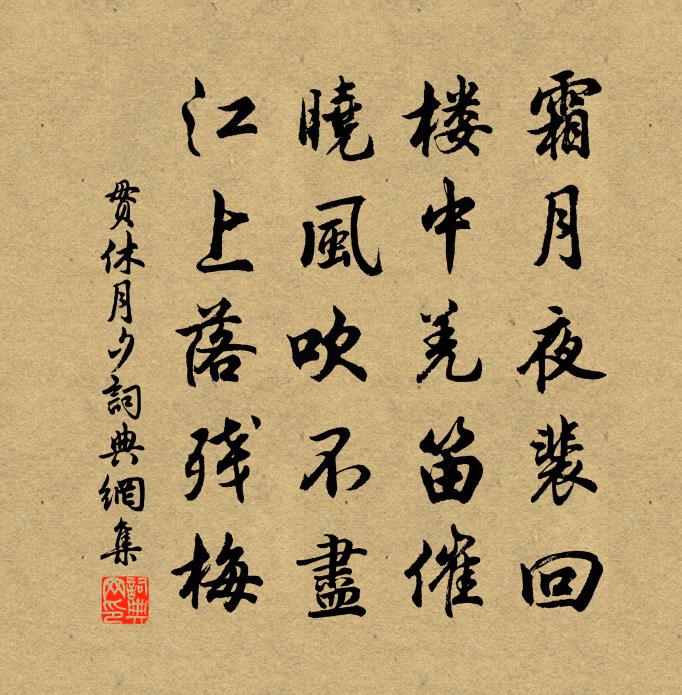 霜月夜裴回
楼中羌笛催
曉風吹不盡
江上落残梅
貫休月夕詞典網集
詞典网印